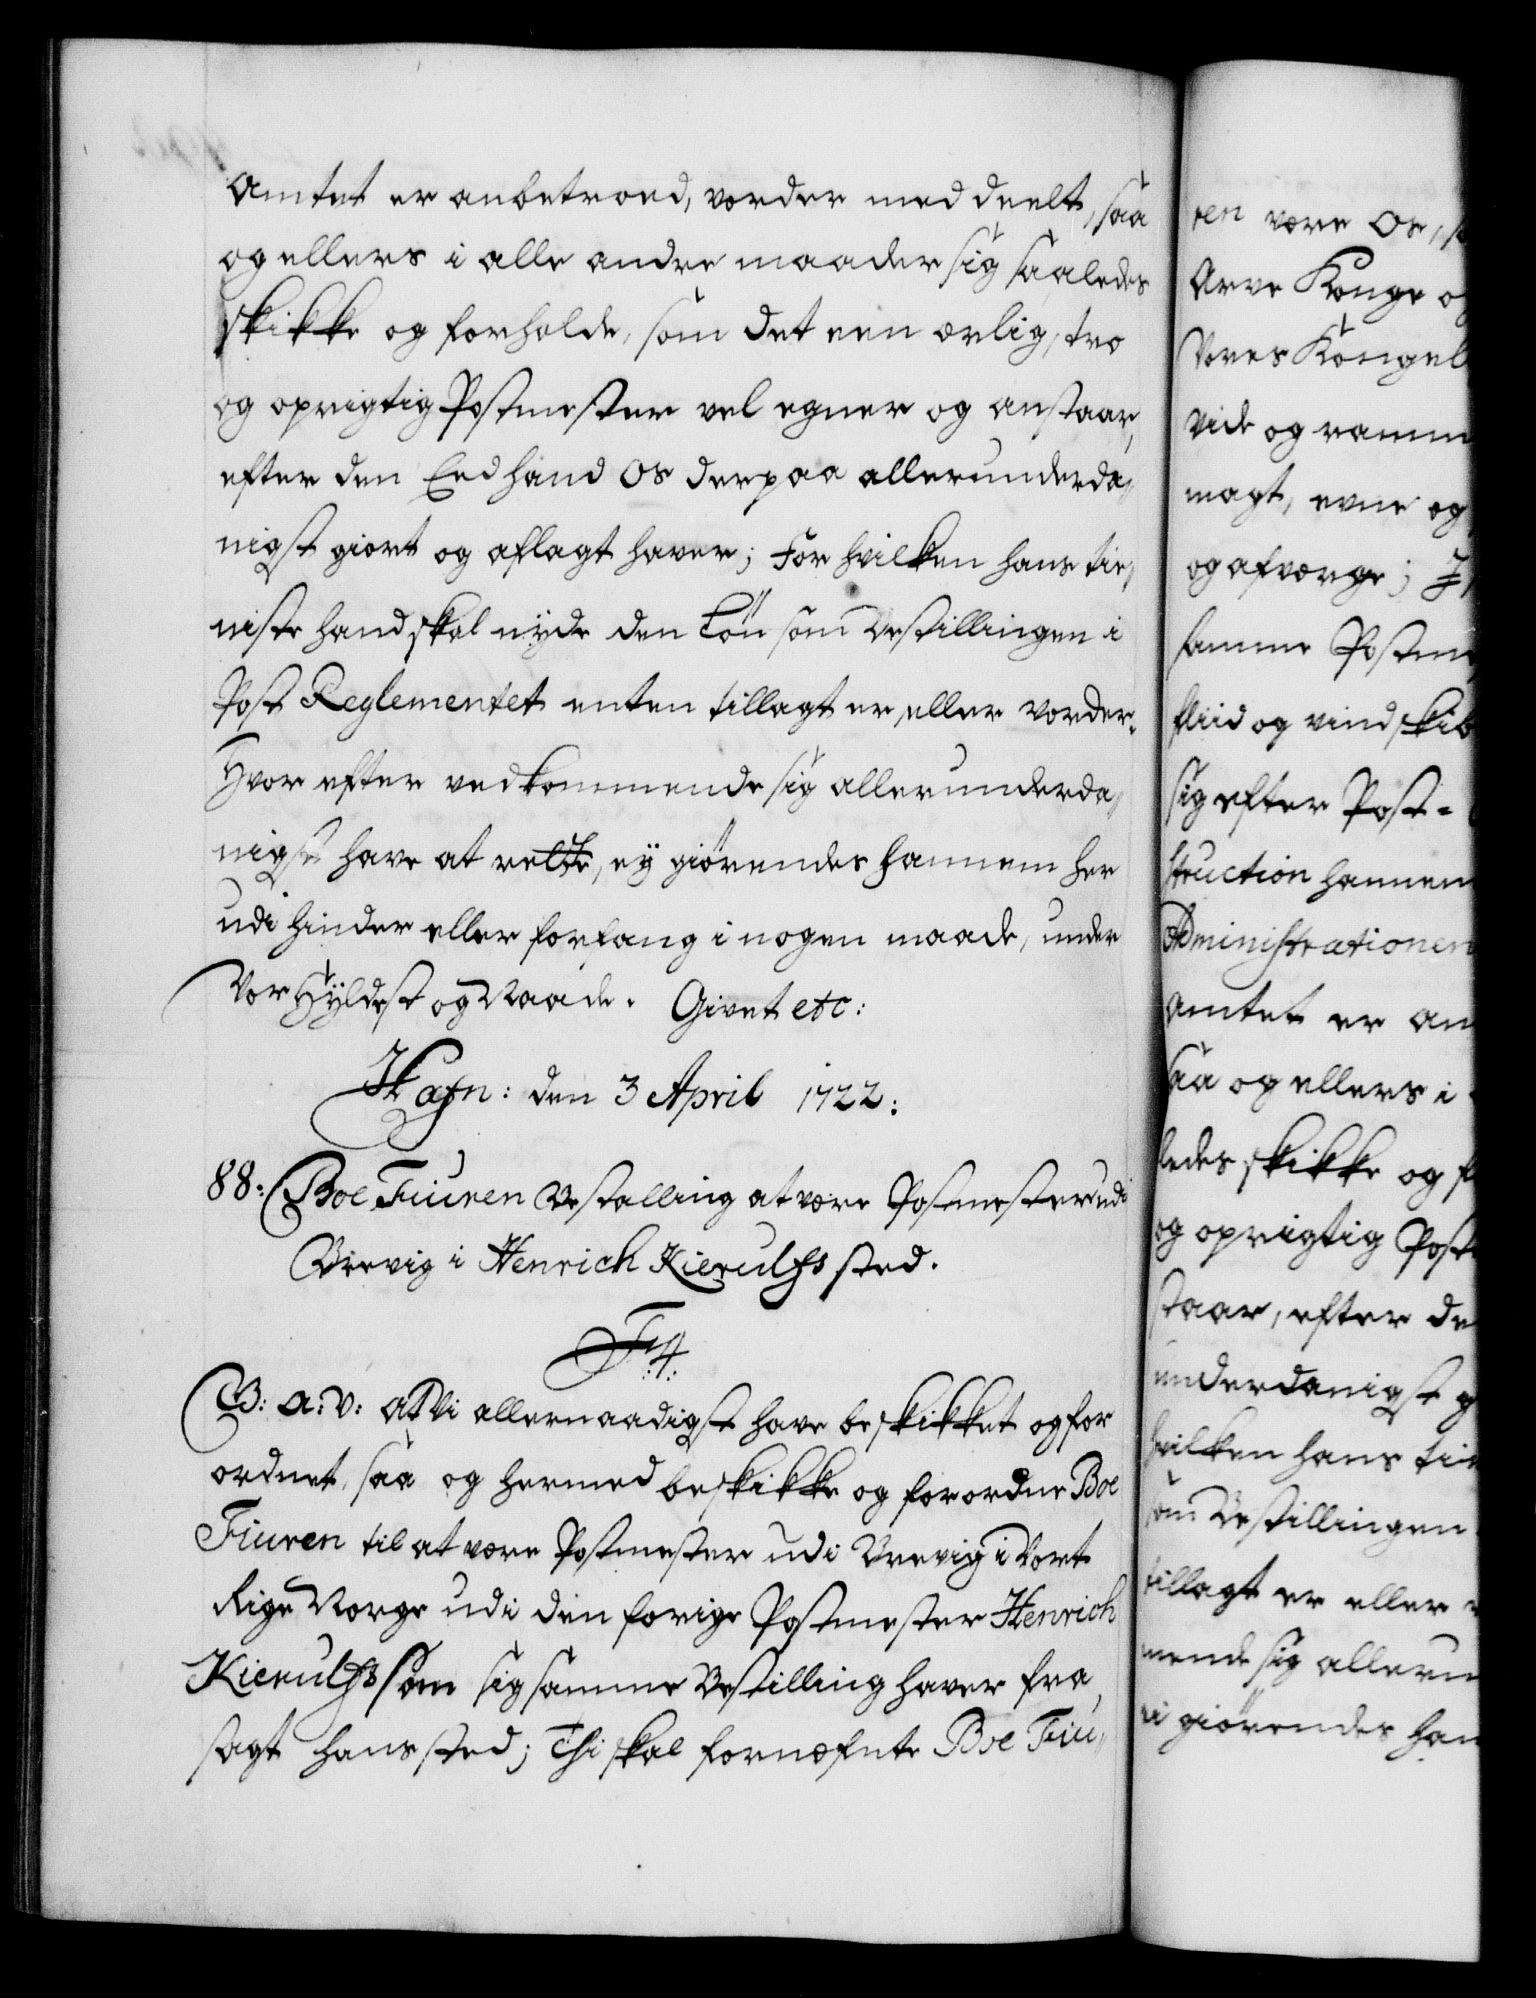 Amtet er anbetroed, vorder meddeelt, saa
og ellers i alle andre maader sig saaledes
skikke og forholde, som det een ærlig, tro
og oprigtig Postmester vel egner og anstaar,
efter den Eed hand Os derpaa allerunderda„
nigst giort og aflagt haver; For hvilken hans tie„
niste hand skal nyde den Løn som Bestillingen i
Post Reglementet enten tillagt er, eller vorder.
Hvor efter vedkommende sig allerunderda„
nigst have at rette, ey giørendes hannem her
udi hinder eller forfang i nogen maade, under
Vor Hyldest og Naade. Givet etc:
Hafn: den 3 April 1722:
88: Boe Fiuren Bestalling at være Postmester udi
Brevig i Henrich Kierulfs sted.
F:4:
G: A: V: At Vi allernaadigst have beskikket og for
ordnet, saa og hermed beskikke og forordne Boe
Fiuren til at være Postmester udi Brevig i Vort
Rige Norge udi den forige Postmester Henrich
Kierulfs som sig samme Bestilling haver fra„
sagt hans sted; Thi skal fornæfnte Boe Fiu„
ren være Os, s
Arve Konge og
Vores Kongel
vide og ramm
magt, evne og
og afværge; I
samme Postme
fliid og vindskib
sig efter Post-
struction hannem
Administrationen
Amtet er an
saa og ellers i
ledes skikke og f
og oprigtig Post
staar, efter de
underdanigst g
hvilken hans tie
som Bestillingen
tillagt er eller v
mende sig allerun
di giørendes han